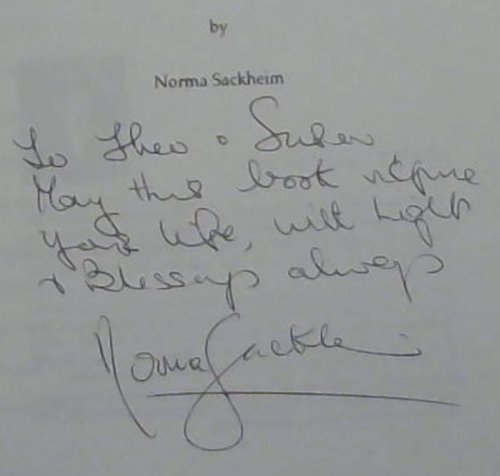 by
Norma Sackheim
To Theo & Susan
May this book inspire
your life, with Light
& Blessings always
Norma Sackheim